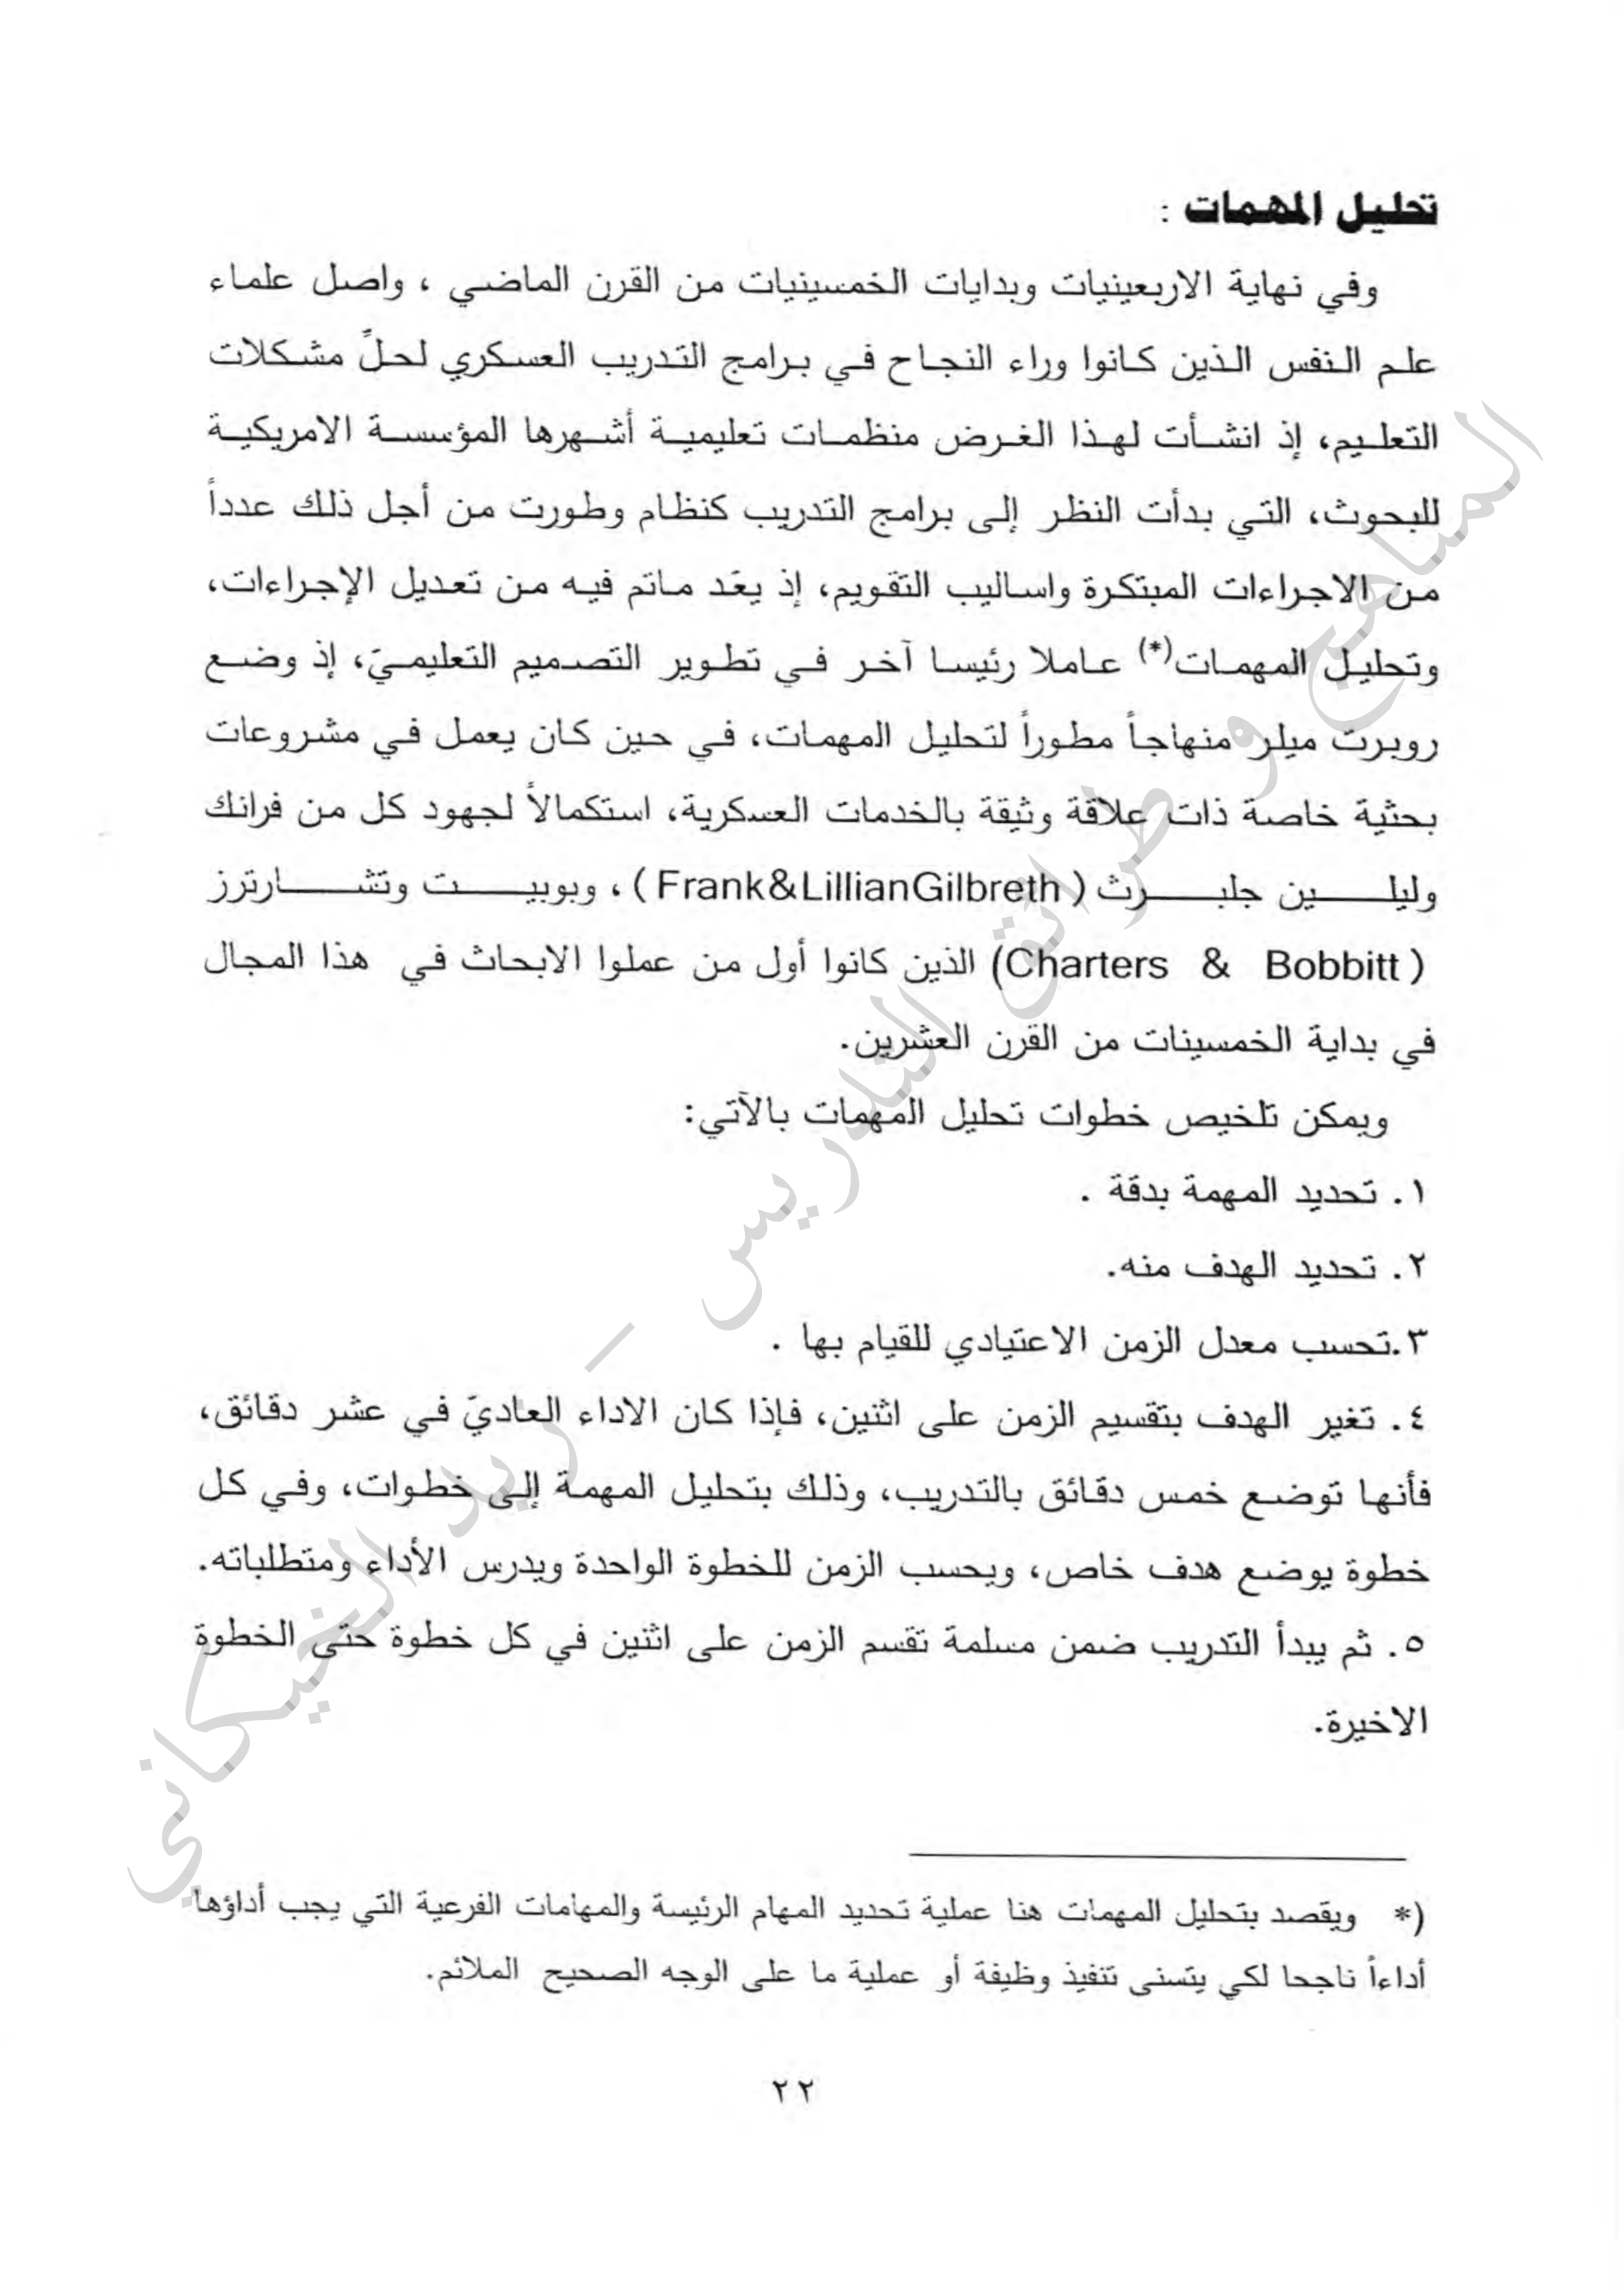 تحليل المهمات :
وفي نهاية الاربعينيات وبدايات الخمسينيات من القرن الماضي ، واصل علماء
علم النفس الذين كانوا وراء النجاح في برامج التدريب العسكري لحلِّ مشكلات
التعليم، إذ انشأت لهذا الغرض منظمات تعليمية أشهرها المؤسسة الامريكية
للبحوث، التي بدأت النظر إلى برامج التدريب كنظام وطورت من أجل ذلك عدداً
من الاجراءات المبتكرة واساليب التقويم، إذ يعّد ماتم فيه من تعديل الإجراءات،
وتحليل المهمات(*) عاملا رئيسا آخر في تطوير التصميم التعليميّ، إذ وضع
روبرت ميلر منهاجاً مطوراً لتحليل المهمات، في حين كان يعمل في مشروعات
بحثية خاصة ذات علاقة وثيقة بالخدمات العسكرية، استكمالاً لجهود كل من فرانك
وليلين جلبرث (Frank&LillianGilbreth) ، وبوبيت وتشارترز
(Charters & Bobbitt) الذين كانوا أول من عملوا الابحاث في هذا المجال
في بداية الخمسينات من القرن العشرين.
ويمكن تلخيص خطوات تحليل المهمات بالآتي:
١. تحديد المهمة بدقة .
٢. تحديد الهدف منه.
٣.تحسب معدل الزمن الاعتيادي للقيام بها .
٤. تغير الهدف بتقسيم الزمن على اثنين، فإذا كان الاداء العاديّ في عشر دقائق،
فأنها توضع خمس دقائق بالتدريب، وذلك بتحليل المهمة إلى خطوات، وفي كل
خطوة يوضع هدف خاص، ويحسب الزمن للخطوة الواحدة ويدرس الأداء ومتطلباته.
٥. ثم يبدأ التدريب ضمن مسلمة تقسم الزمن على اثنين في كل خطوة حتى الخطوة
الاخيرة.
(* ويقصد بتحليل المهمات هنا عملية تحديد المهام الرئيسة والمهامات الفرعية التي يجب أداؤها
أداءاً ناجحا لكي يتسنى تنفيذ وظيفة أو عملية ما على الوجه الصحيح الملائم.
٢٢
المناهج و طرائق التدريس – زيد الخيكاني